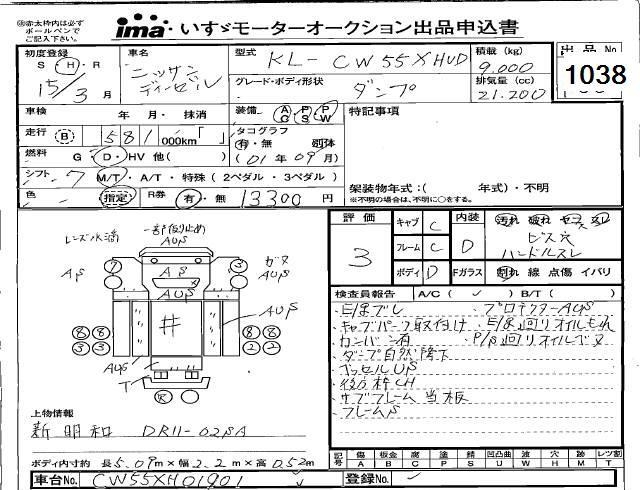 ㊟赤太枠内は必ず
ボールペンで
ご記入下さい。
ima いすゞモーターオークション出品申込書
初度登録 車名 型式 積載 (kg) 出品No
S H・R ニッサン KL-CW55XHUD 9,000 1038
15/3月 ディーゼル グレード・ボディ形状 排気量 (cc)
ダンプ 21.200
車検 年 月・抹消 装備 AC PS PW 特記事項
走行 B 581 000km「 」 タコグラフ
有・無 別体
燃料 G・D・HV 他( ) (01年09月)
シフト 7 M/T・A/T・特殊 (2ペダル・3ペダル)
架装物年式:( 年式)・不明
色 指定 R券 有・無 13300円
※不明の場合は、不明に○をする。
評価 キャブ C 内装 汚れ 破れ
3 フレーム C D ビス穴
ハンドルスレ
ボディ D Fガラス 割れ 線 点傷 イバリ
検査員報告 A/C( ✓ ) B/T( )
E/Gブレ プロテクターAUS
キャブパーツ取付け E/G廻りオイルもれ
カンバン有
ダンプ自然降下
ベッセルUS
後方枠CH
サブフレーム当板
フレームS
レンズ水滴 一部仮止め
AUS
AS 7 AS 3 ガタ
AUS
AUS
井 AUS
8 8 8 8
3 3 2 2
AUS
T
R
上物情報
新明和 DR11-02SA
ボディ内寸約 長5.09m×幅2.2m×高0.52m
記号 傷 板金 腐 塗 錆 凹凸曲 波 穴 跡 レツ割
A B C P S U W H M T
車台No. CW55XH01901 登録No.